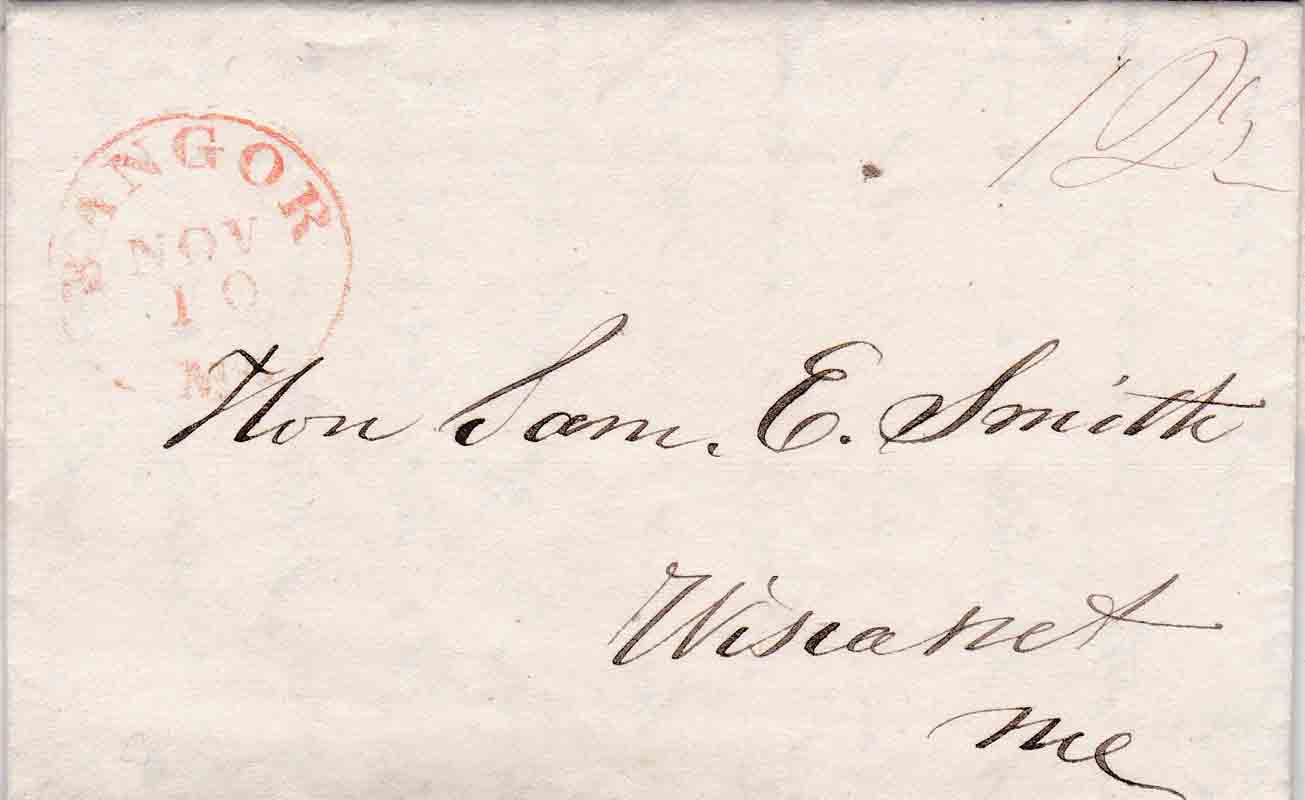 BANGOR
NOV
10
Me
12½
Hon Sam. E. Smith
Wiscasset
Me